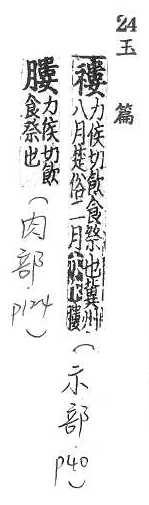 24 玉篇
䄛 力侯切飲食祭也冀州
八月楚俗二月亦作膢
(示部.p40)
膢 力侯切飲
食祭也
(肉部.p124)